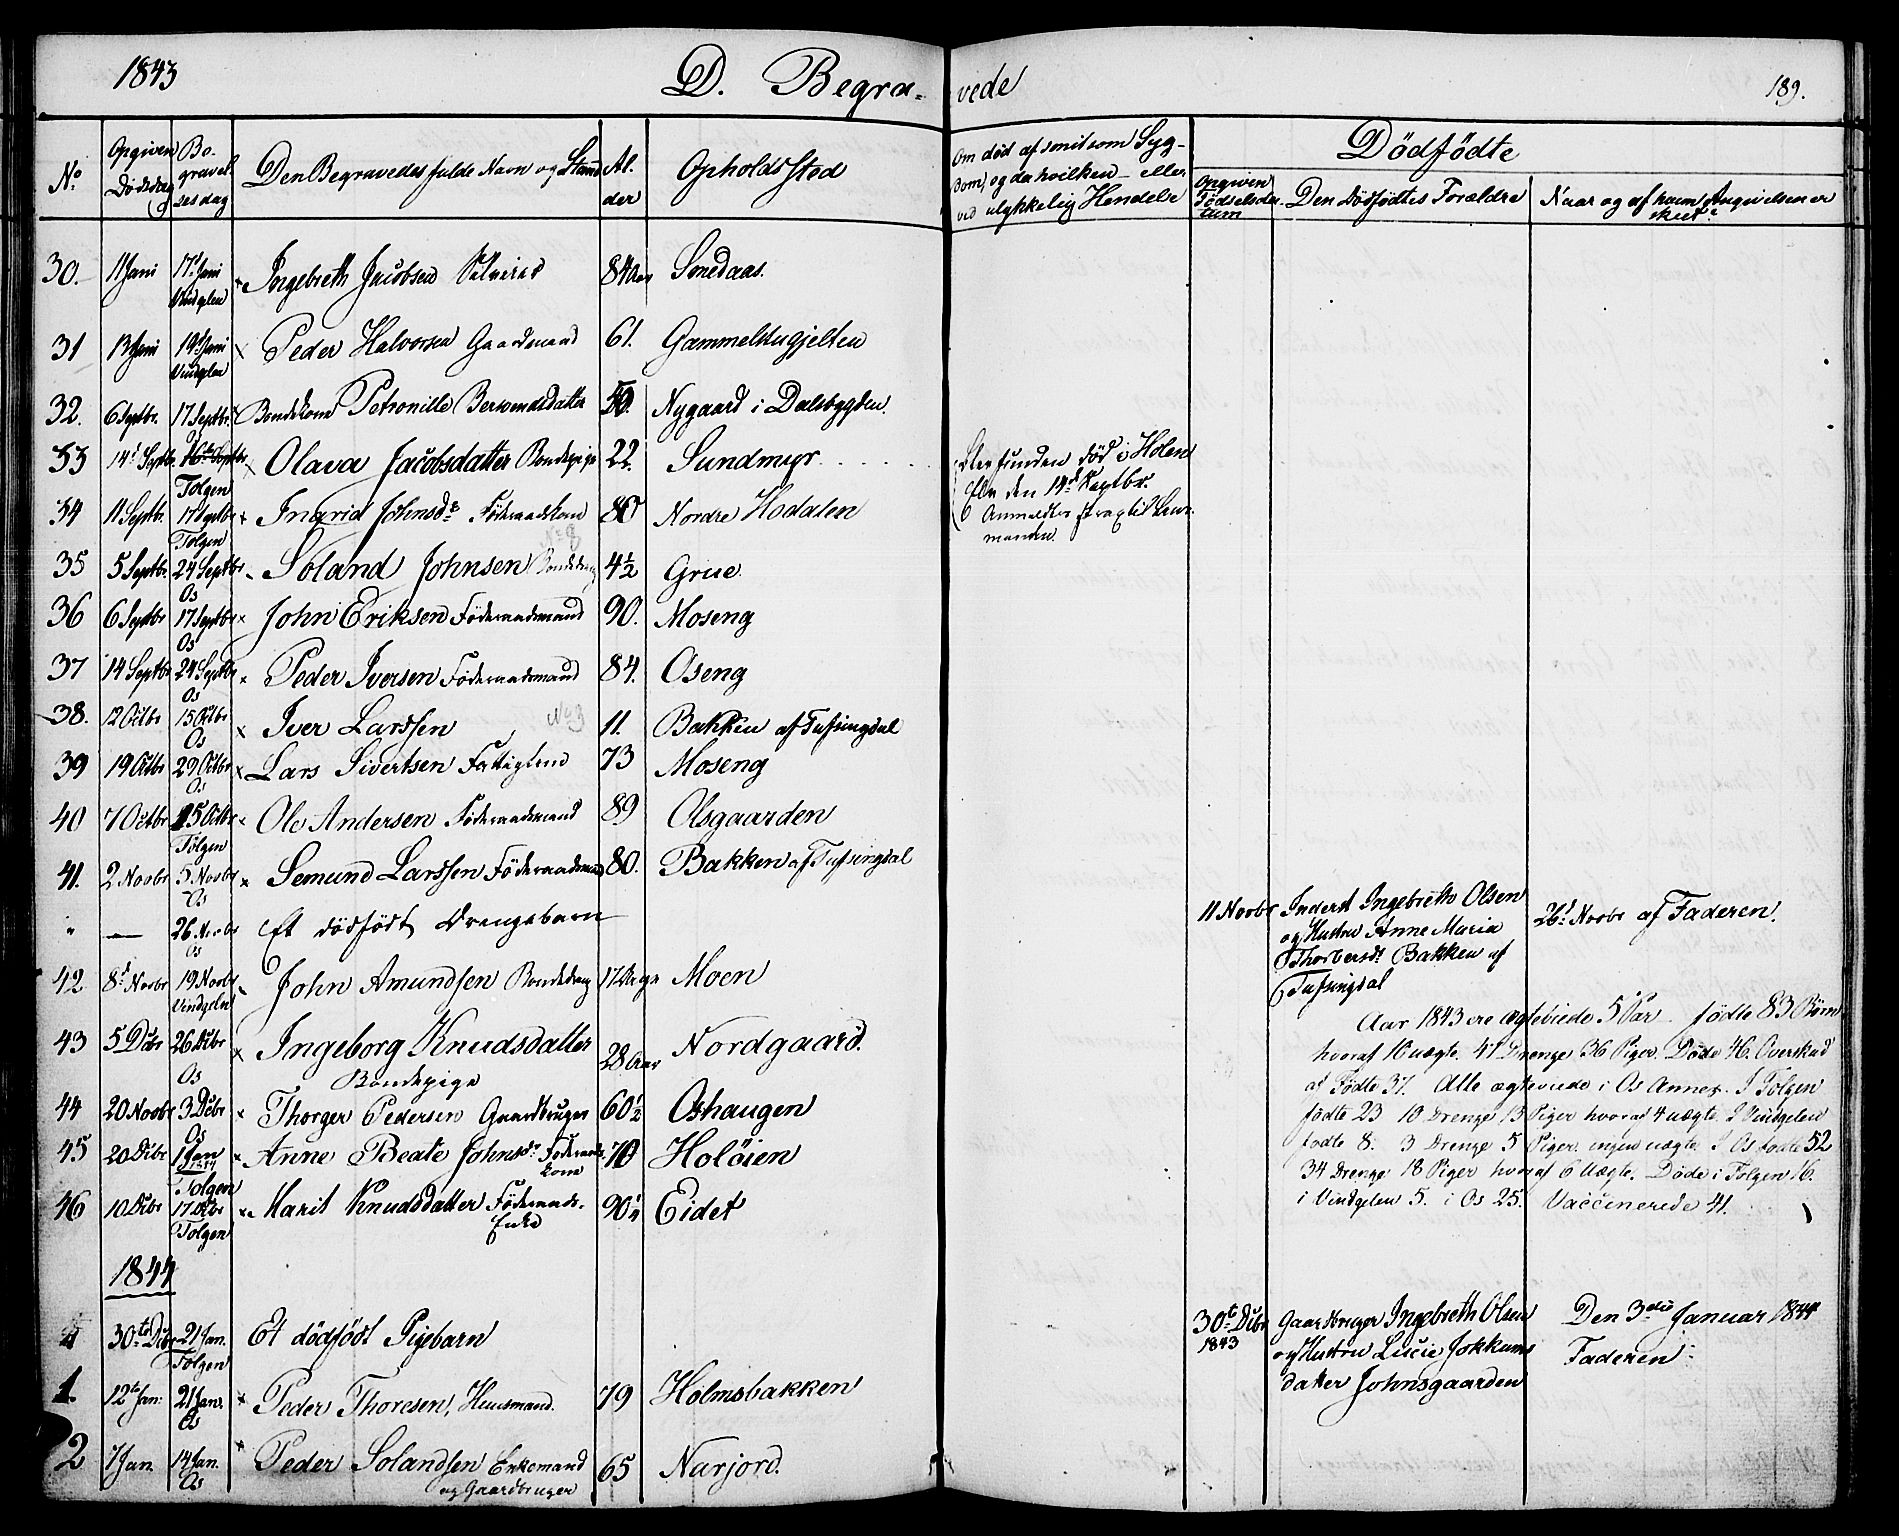 1843 D. Begra- vede 189.
No Opgiven Dødsdag Begravelsesdag Den Begravedes fulde Navn og Stand Alder Opholdssted Om død af smitsom Sygdom, og da hvilken – eller ved ulykkelig Hendelse
Dödfödte
Opgiven Fødselsdatum Den Dödfödtes Forældre Naar og af hvem Angivelsen er skeet
30. 11 Juni 17d Juni Vindgelen Ingebreth Jacobsen 84 Aar Smedaas.
31 13 Juni 19d Juni Vindgelen Peder Halvorsen Gaardmand 61. Gammelstugjelten
32. 6 Septbr. 17 Septbr. Bondekone Petronille Bersvendsdatter 50. Nygaard i Dalsbygden.
33 14d Septbr. Tolgen Olava Jacobsdatter Bondepige 22. Sundmyr
Blev funden død i Holen
Elv den 14d Septbr.
Anmeldtes strax til Lens-
manden.
34 11 Septb. 17 Septbr Tolgen Ingrid Johnsdr Föderaadskone 80 Nordre Hodalen
No 8
35 5 Septbr. 24 Septbr Os Soland Johnsen Bondedreng 4½ Grue.
36 6 Septbr 17 Septbr Os John Eriksen Föderaadsmand 90. Moseng
37 14 Septbr 24 Septbr Os Peder Iversen Föderaadsmand 84. Oseng
38. 12 Octbr 15 Octbr Os Iver Larssen No 3 11. Bakken af Tufsingdal
39 19 Octbr 29 Octbr Os Lars Sivertsen Fattiglem 73 Moseng
40 7 Octbr 15 Octbr Tolgen Ole Andersen Föderaadsmand 89 Olsgaarden
41. 2 Novbr 5 Novbr Os Semund Larssen Föderaadsmand 80. Bakken af Tufsingdal
" — 26 Novbr Os Et dödfödt Drengebarn
11 Novbr Inderst Ingebreth Olsen
og Hustru Anne Maria
Thorbersdr Bakken af
Tufsingdal
26d Novbr af Faderen.
42 8d Novbr 19 Novbr Vindgelen John Amundsen Bondedreng 17 Dage Moen
43 5 Decbr 26 Decbr Os Ingeborg Knudsdatter Bondepige 28 Aar Nordgaard.
44 20 Novbr 3 Decbr Os Thorger Pedersen Gaardbruger 60½ Oshaugen
45 20 Decbr 1 Jan 1844 Tolgen Anne Beate Johnsdr Föderaadskone 70 Holöien
46 10 Decbr 17 Decbr Tolgen Marit Knudsdatter Föderaads-Enke 90 Eidet
Aar 1843 ere ægteviede 5 Par födte 83 Børn
hvoraf 10 uægte. 47 Drenge 36 Piger. Døde 46. Overskud
af Födte 37. Alle ægteviede i Os Annex. I Tolgen
födte 23 10 Drenge 13 Piger hvoraf 4 uægte. I Vindgelen
födte 8. 3 Drenge 5 Piger. ingen uægte. I Os födte 52
34 Drenge 18 Piger hvoraf 6 Uægte. Døde i Tolgen 16.
i Vindgelen 5. i Os 25. Vaccinerede 41.
1844
30te Decbr 21 Jan. Tolgen Et dödfödt Pigebarn
30te Decbr 1843 Gaardbruger Ingebreth Olsen
og Hustru Lucie Jokkums
datter Johnsgaarden
Den 3die Januar 1844
Faderen
1. 12te Jan. 21 Jan. Os Peder Thoresen, Huusmand. 79 Holmsbakken
2 7 Jan. 14 Jan. Os Peder Solandsen Enkemand og Gaardbruger 65 Narjord.